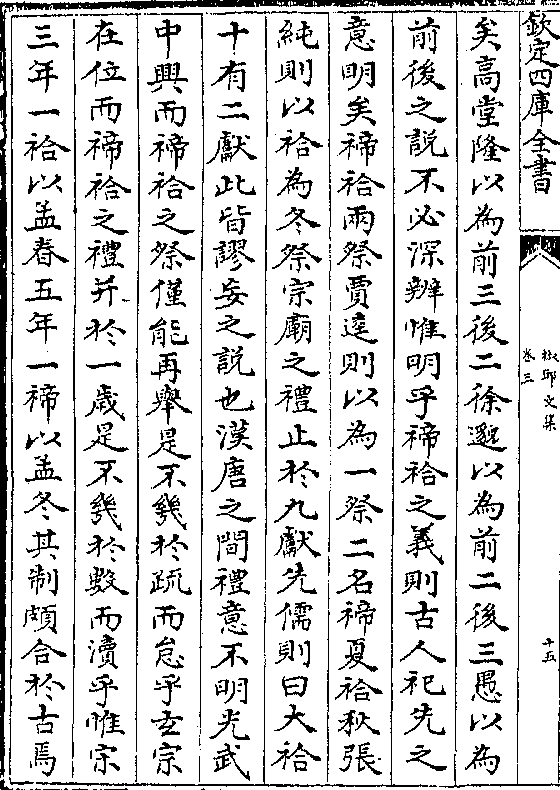 欽定四庫全書
椒邱文集
卷三
十五
矣高堂隆以為前三後二徐邈以為前二後三愚以為
前後之説不必深辨惟明乎禘祫之義則古人祀先之
意明矣禘祫兩祭賈逵則以為一祭二名禘夏祫秋張
純則以祫為冬祭宗廟之禮止於九獻先儒則曰大祫
十有二獻此皆謬妄之説也漢唐之間禮意不明光武
中興而禘祫之祭僅能再舉是不幾於疏而怠乎玄宗
在位而禘祫之禮并於一歲是不幾於數而瀆乎惟宗
三年一祫以孟春五年一禘以孟冬其制頗合於古焉